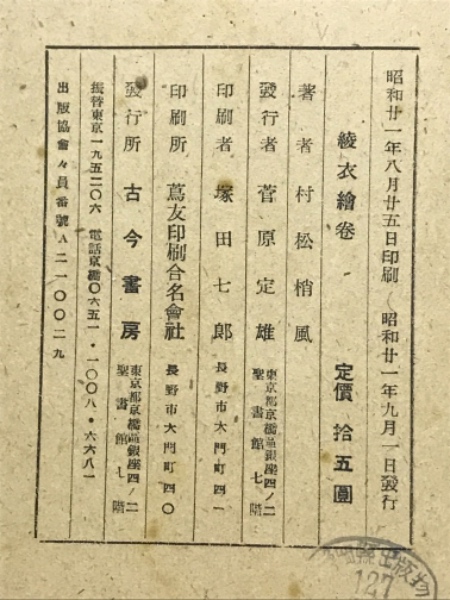 昭和廿一年八月廿五日印刷 昭和廿一年九月一日發行
綾衣繪卷 定價 拾五圓
著者 村松梢風
發行者 菅原定雄 東京都京橋區銀座四ノ二
聖書館七階
印刷者 塚田七郎 長野市大門町四一
印刷所 蔦友印刷合名會社 長野市大門町四〇
發行所 古今書房 東京都京橋區銀座四ノ二
聖書館七階
振替東京一九五二〇六 電話京橋〇六五一・一〇〇八・六六八一
出版協會々員番號A二一〇〇二九
縣出版物
127